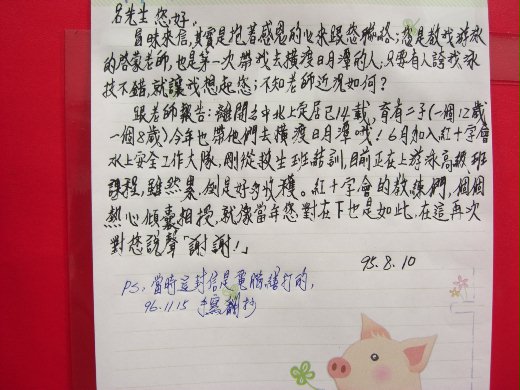 名先生 您好。
冒昧來信,其實是抱著感恩的心來跟您聯絡;您是教我游泳
的啓蒙老師,也是第一次帶我去橫渡日月潭的人;只要有人誇我泳
技不錯,就讓我想起您;不知老師近況如何?
跟老師報告:離開台中北上定居已14載,育有二子(一個12歲
一個8歲)今年也帶他們去橫渡日月潭哦!6月加入紅十字會
水上安全工作大隊,剛從救生班結訓,目前正在上游泳高級班
課程,雖然累,倒是好多收穫。紅十字會的教練們,個個
熱心傾囊相授,就像當年您對在下也是如此,在這再次
對您說聲「謝謝!」
95.8.10
PS:當時這封信是電腦繕打的,
96.11.15 手寫翻抄